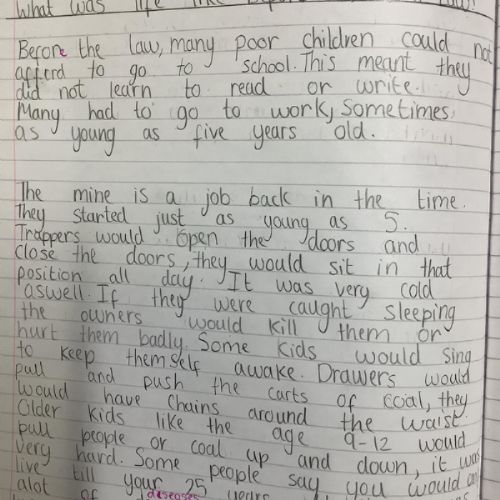 What was life like before
Before the law, many poor children could not
afford to go to school. This meant they
did not learn to read or write.
Many had to go to work, Sometimes
as young as five years old.
The mine is a job back in the time.
They started just as young as 5.
Trappers would open the doors and
close the doors, they would sit in that
position all day. It was very cold
aswell. If they were caught sleeping
the owners would kill them or
hurt them badly. Some kids would sing
to keep themself awake. Drawers would
pull and push the carts of coal, they
would have chains around the waist.
Older kids like the age 9-12 would
pull people or coal up and down, it was
very hard. Some people say you would only
live till your 25 years
alot of diseases